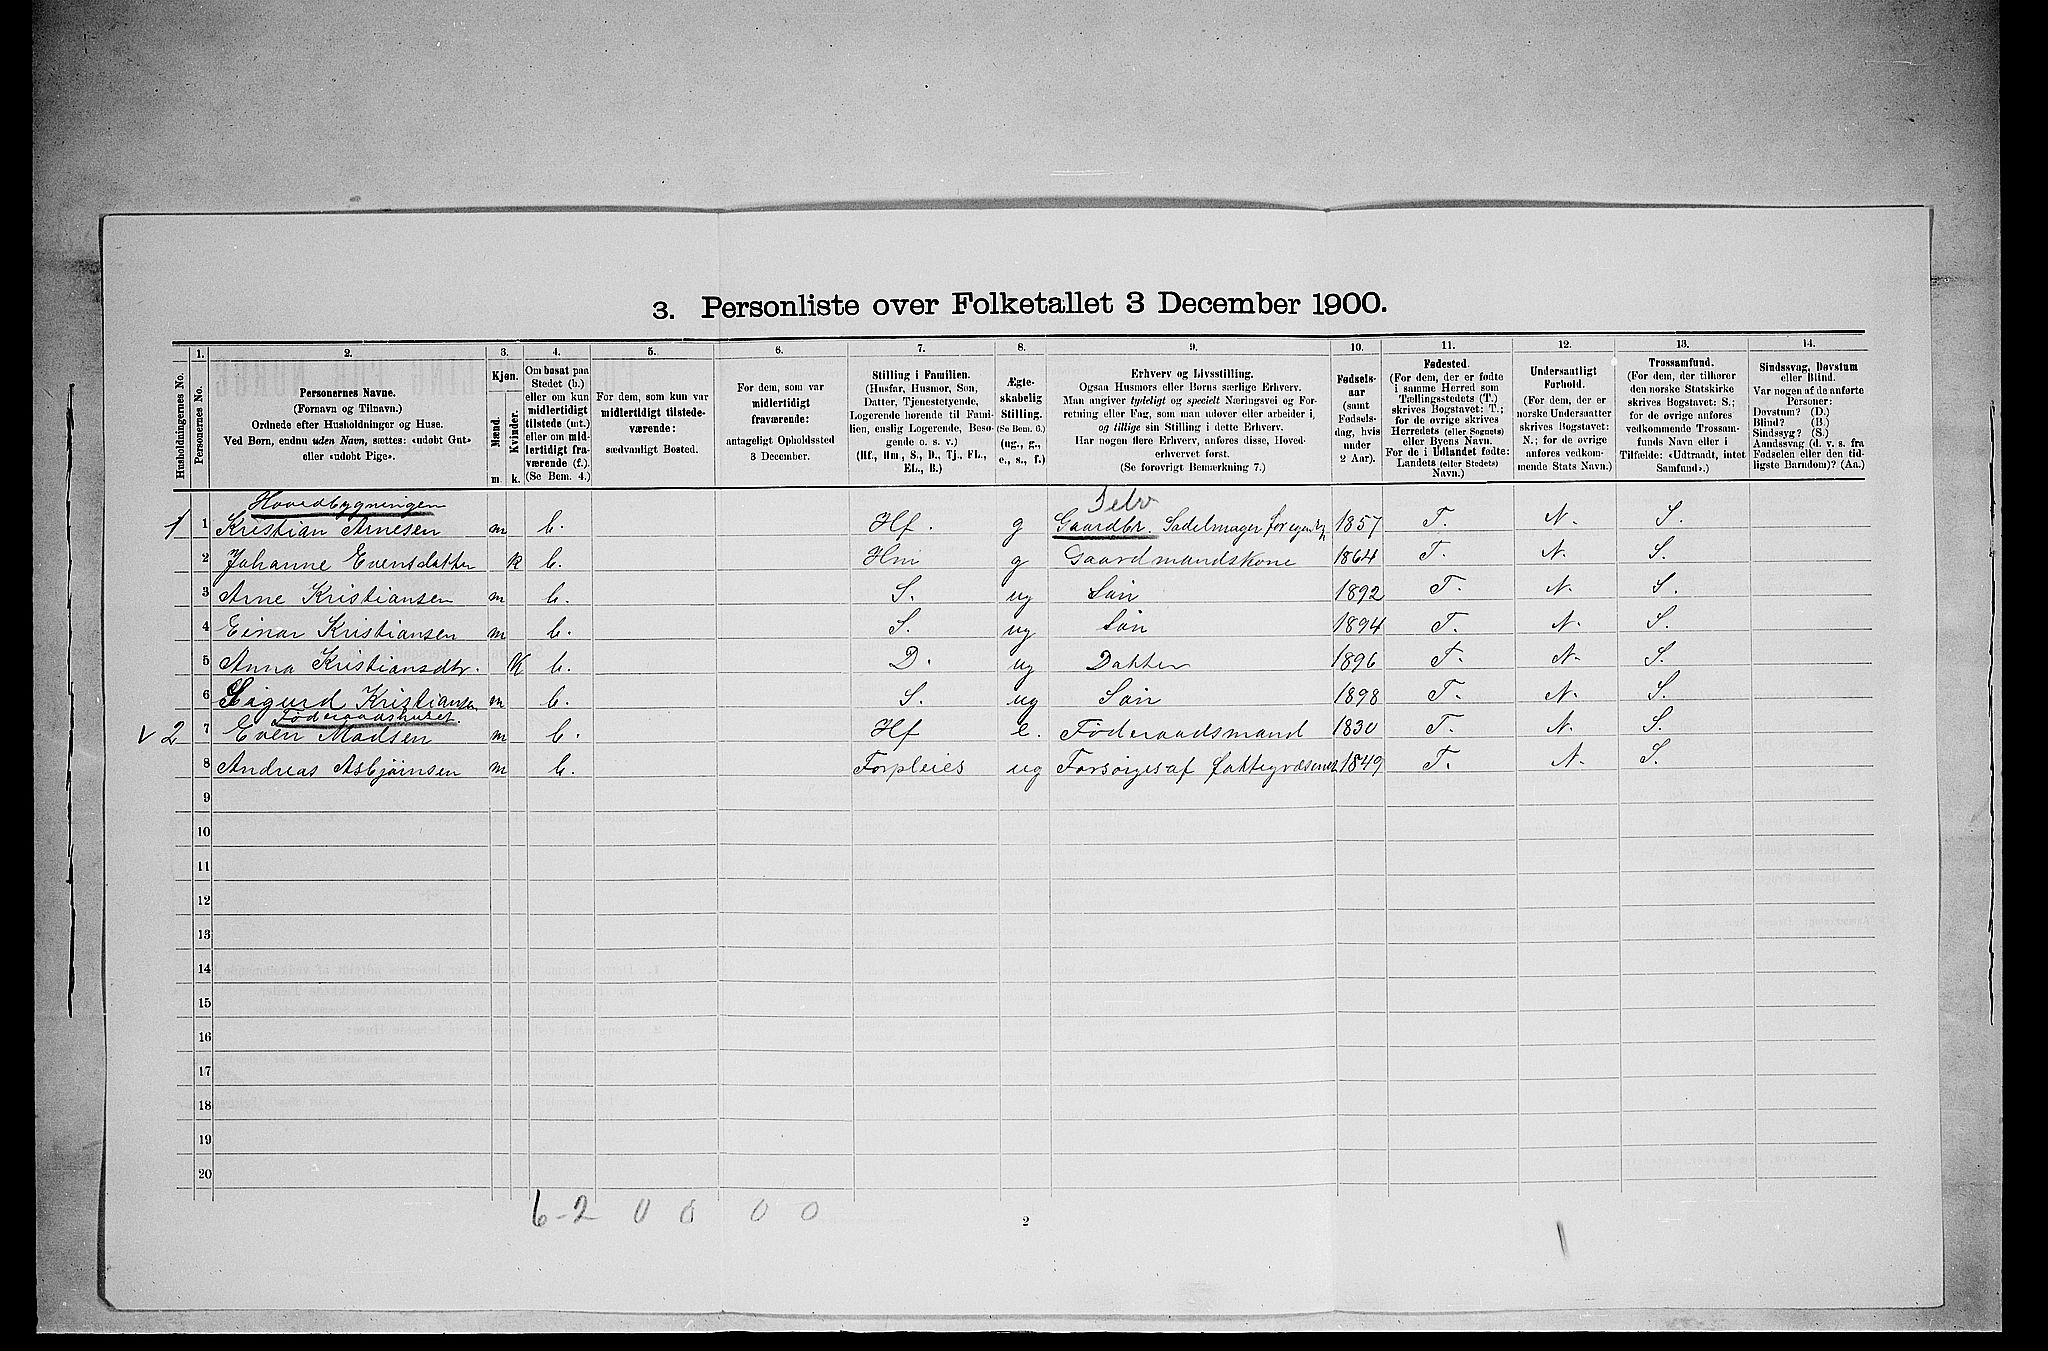 3. Personliste over Folketallet 3 December 1900.
Husholdningernes No.
1.
Personernes No.
2.
Personernes Navne.
(Fornavn og Tilnavn.)
Ordnede efter Husholdninger og Huse.
Ved Børn, endnu uden Navn, sættes: «udøbt Gut»
eller «udøbt Pige».
3.
Kjøn.
Mænd.
Kvinder.
m. k.
4.
Om bosat paa
Stedet (b.)
eller om kun
midlertidigt
tilstede (mt.)
eller om mid-
lertidigt fra-
værende (f.).
(Se Bem. 4.)
5.
For dem, som kun var
midlertidigt tilstede-
værende:
sædvanligt Bosted.
6.
For dem, som var
midlertidigt
fraværende:
antageligt Opholdssted
3 December.
7.
Stilling i Familien.
(Husfar, Husmor, Søn,
Datter, Tjenestetyende,
Logerende hørende til Fami-
lien, enslig Logerende, Besø-
gende o. s. v.)
(Hf., Hm., S., D., Tj., FL.,
EL., B.)
8.
Ægte-
skabelig
Stilling.
(Se Bem. 6.)
(ug., g.,
e., s., f.)
9.
Erhverv og Livsstilling.
Ogsaa Husmors eller Børns særlige Erhverv.
Man angiver tydeligt og specielt Næringsvei og For-
retning eller Fag, som man udøver eller arbeider i,
og tillige sin Stilling i dette Erhverv.
Har nogen flere Erhverv, anføres disse, Hoved-
erhvervet først.
(Se forøvrigt Bemerkning 7.)
10.
Fødsels-
aar
(samt
Fødsels-
dag, hvis
under
2 Aar).
11.
Fødested.
(For dem, der er fødte
i samme Herred som
Tællingsstedets (T.)
skrives Bogstavet: T.;
for de øvrige skrives
Herredets (eller Sognets)
eller Byens Navn.
For de i Udlandet fødte:
Landets (eller Stedets)
Navn.)
12.
Undersaatligt
Forhold.
(For dem, der er
norske Undersaatter
skrives Bogstavet:
N.; for de øvrige
anføres vedkom-
mende Stats Navn.)
13.
Trossamfund.
(For dem, der tilhører
den norske Statskirke
skrives Bogstavet: S.;
for de øvrige anføres
vedkommende Trossam-
funds Navn eller i
Tilfælde: «Udtraadt, intet
Samfund».)
14.
Sindssvag, Døvstum
eller Blind.
Var nogen af de anførte
Personer:
Døvstum? (D.)
Blind? (B.)
Sindssyg? (S.)
Aandssvag (d. v. s. fra
Fødselen eller den tid-
ligste Barndom)? (Aa.)
Hovedbygningen Selv
1 1 Kristian Arnesen m b. Hf. g Gaardbr. Sadelmager for egen 1857 T. N. S.
2 Johanne Evensdatter k b. Hm g Gaardmandskone 1864 T. N. S.
3 Arne Kristiansen m b. S. ug Søn 1892 T. N. S.
4 Einar Kristiansen m b. S. ug Søn 1894 T. N. S.
5 Anna Kristiansdtr. K b. D. ug Datter 1896 T. N. S.
6 Sigurd Kristiansen m b. S. ug Søn 1898 T. N. S.
Føderaadshuset.
v 2 7 Even Madsen m b. Hf e. Føderaadsmand 1830 T. N. S.
8 Andreas Asbjørnsen m b. Forpleies ug Forsørges af fattigvæsenet 1849 T. N. S.
9
10
11
12
13
14
15
16
17
18
19
20
6-2 0 0 0 0
2
1